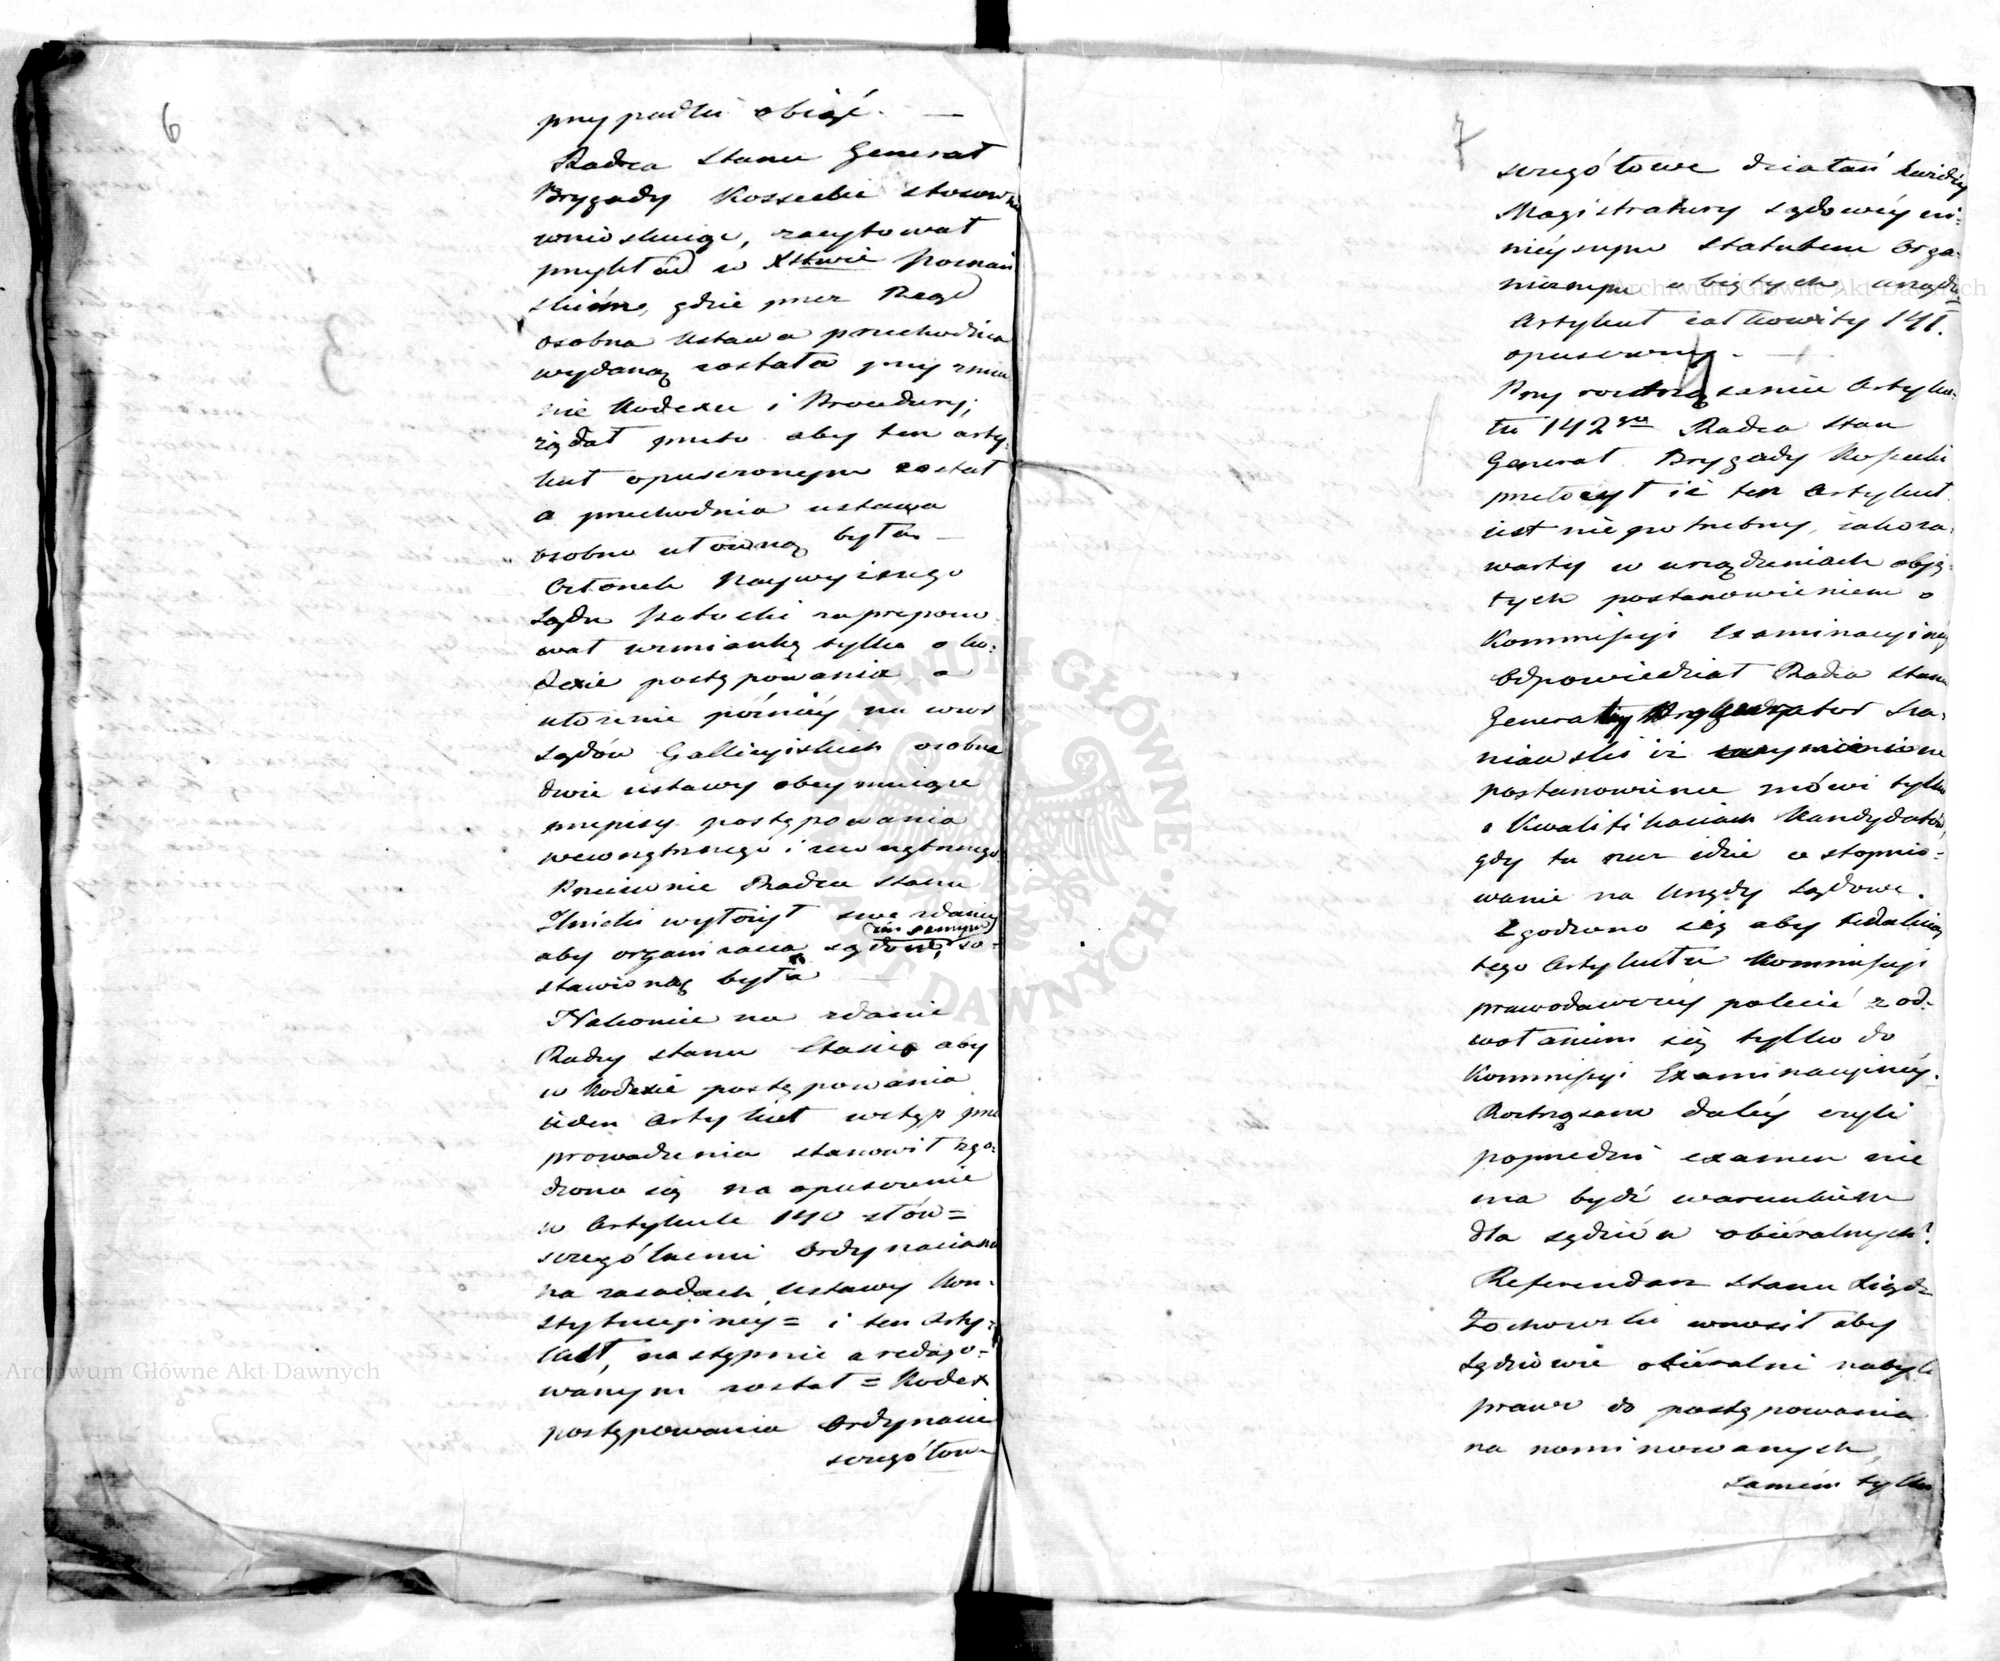 6
przypadki obiąć. —
Radca Stanu Generał
Brygady Kossecki stosow
wnioskuiąc, zacytował
przykład w Xstwie Poznań
skiém, gdzie przez Rząd
osobna Ustawa przechodnia
wydaną została przy zmia
nie Kodexu i Procedury;
żądał przeto aby ten arty-
kuł opuszczonym został
a przechodnia ustawa
osobno ułożoną była. —
Członek Naywyższego
Sądu zapropono-
wał wzmiankę tylko o ko-
dexie postępowania a
ułożenie późniéy na wzór
Sądów Gallicyiskich osobne
dwie ustawy obeymuiące
przepisy postępowania
wewnętrznego i zewnętrznego.
Przeciwnie Radca Stanu
wyłożył swe zdanie
aby organizacya sądowa, zo-
stawioną była —
Nakoniec na zdanie
Radcy Stanu Stasica aby
w Kodexie postępowania
ieden Artykuł wstęp prze
prowadzenia stanowił zgo-
dzono się na opuszczenie
w Artykule 140 słów =
szczególnemi Ordynaciami
na zasadach Ustawy Kon-
stytucyiney = i ten Arty-
kuł, następnie aredago-
wánym został = Kodex
postępowania Ordynacie
szczegółowe
7
szczegółowe działań każdéy
Magistratury sądowéy ni-
nieyszym statutem Orga-
nicznym obiętych urządzą
Artykuł całkowity 141.
opuszczony. —
Przy roztrząsaniu Artyku-
łu 142go Radca Stanu
Generał Brygady Kossecki
przełożył iż ten Artykuł
iest niepotrzebny, iako za-
warty w urządzeniach obję-
tych postanowieniem o
Kommissyi Examinacyinéy
Odpowiedział Radca Stanu
Generalny Prokurator Sza-
niawski iż wymienione
postanowienie mówi tylko
o Kwalifikaciach Kandydatów,
gdy tu rzecz idzie o stopnio-
wanie na Urzędy Sądowe.
Zgodzono się aby redakcią
tego Artykułu Kommissyi
prawodawczéy polecić z od-
wołaniem się tylko do
Kommissyi Examinacyinéy.
Roztrząsano daléy czyli
poprzedni examen nie
ma bydź warunkiem
dla sędziów obieralnych?
Referendarz Stanu
Żochowski wnosił aby
Sędziowie obieralni nabyli
prawo do postępowania
na nominowanych,
samém tylko